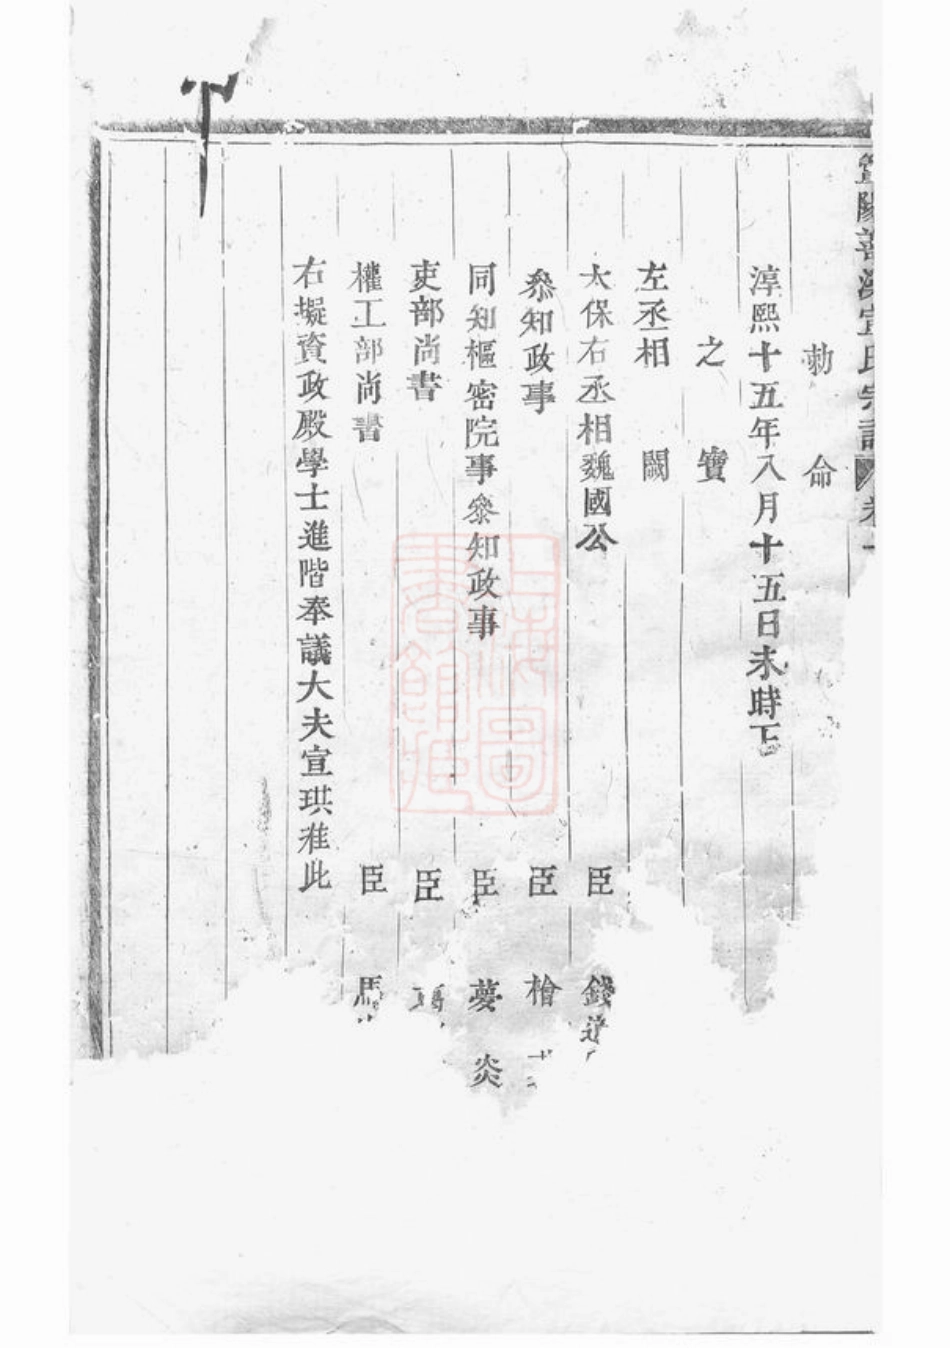 暨陽善溪宣氏宗譜 卷一
勅命
淳熙十五年八月十五日未時下
之寶
左丞相 闕
太保右丞相魏國公 臣 錢
叅知政事 臣 檜
同知樞密院事叅知政事 臣 夢炎
吏部尚書 臣
權工部尚書 臣 馬
右擬資政殿學士進階奉議大夫宣珙准此
上海圖書館藏